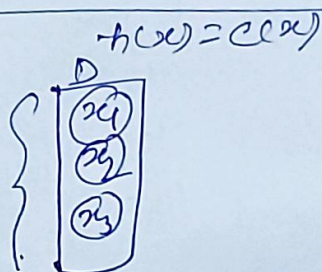 h(x) = c(x)
D
x1
x2
x3